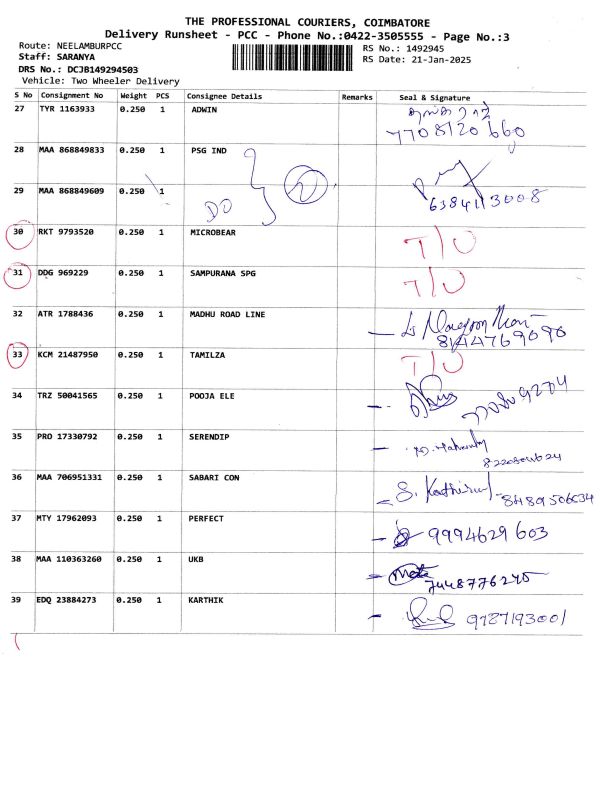 THE PROFESSIONAL COURIERS, COIMBATORE
Delivery Runsheet - PCC - Phone No.:0422-3505555 - Page No.:3
Route: NEELAMBURPCC
RS No.: 1492945
Staff: SARANYA
RS Date: 21-Jan-2025
DRS No.: DCJB149294503
Vehicle: Two Wheeler Delivery
S No Consignment No Weight PCS Consignee Details Remarks Seal & Signature
27 TYR 1163933 0.250 1 ADWIN
7708120660
28 MAA 868849833 0.250 1 PSG IND
29 MAA 868849609 0.250 1
DO
6384113008
30 RKT 9793520 0.250 1 MICROBEAR T/O
31 DDG 969229 0.250 1 SAMPURANA SPG T/O
32 ATR 1788436 0.250 1 MADHU ROAD LINE
8144769090
33 KCM 21487950 0.250 1 TAMILZA T/O
34 TRZ 50041565 0.250 1 POOJA ELE
35 PRO 17330792 0.250 1 SERENDIP
36 MAA 706951331 0.250 1 SABARI CON
8489506634
37 MTY 17962093 0.250 1 PERFECT 9994629603
38 MAA 110363260 0.250 1 UKB
7448776245
39 EDQ 23884273 0.250 1 KARTHIK 9787193001